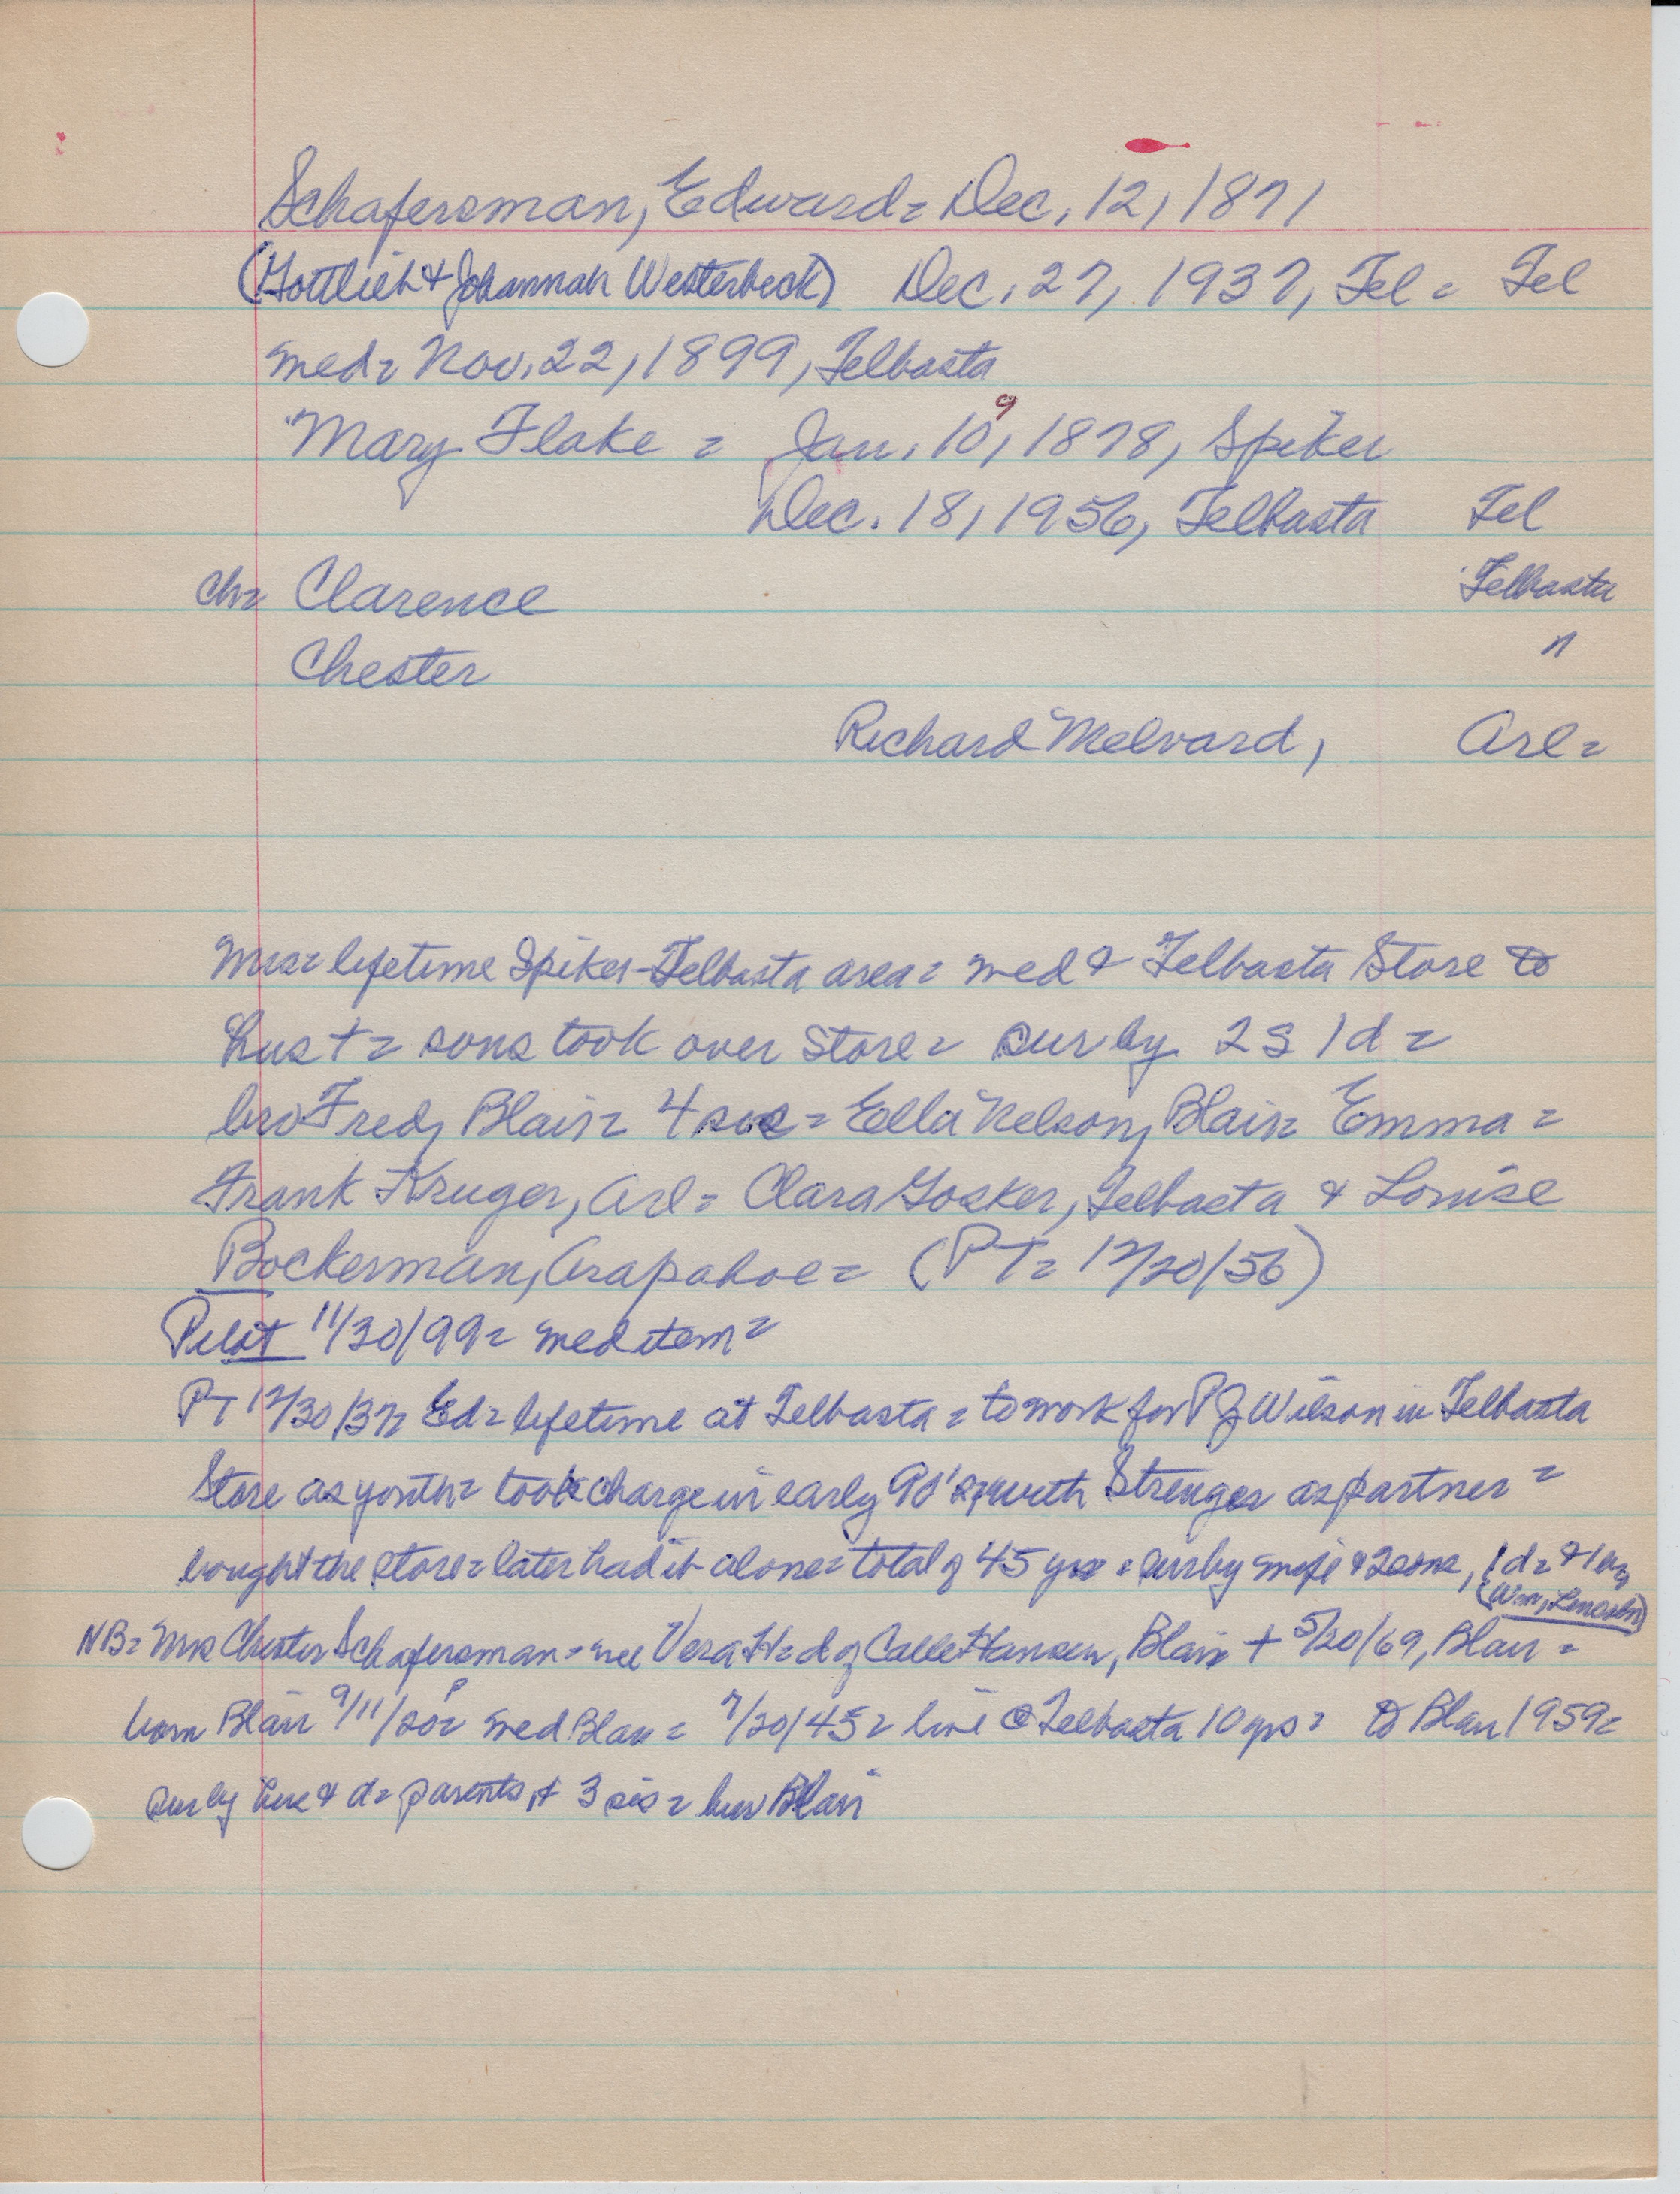 Schafersman, Edward = Dec. 12, 1871
(Gottlieb & Johannah Westerbeck) Dec. 27, 1937, Tel = Tel
med = Nov. 22, 1899, Telbasta
Mary Flake = Jan. 10, 1878, Spiker
9
Dec. 18, 1956, Telbasta Tel
Ch = Clarence Telbasta
Chester "
Richard Melvard, Arl =
Mrs = lifetime Spiker-Telbasta area = med & Telbasta Store to
hus + = sons took over store = sur by 2 s 1 d =
bro Fred, Blair = 4 sis = Ella Nelson, Blair = Emma =
Frank Kruger, Arl = Clara Gosker, Telbasta & Louise
Bockerman, Arapahoe = (PT = 12/20/56)
Pilot 11/30/99 = med item =
PT 12/30/37 = Ed = lifetime at Telbasta = to work for P J Wilson in Telbasta
Store as youth = took charge in early 90's, with Strenger as partner =
bought the store = later had it alone = total of 45 yrs = sur by wife & 2 sons, 1 d = & 1 bro
(Wm, Lincoln)
NB = Mrs Chester Schafersman = nee Vera H = d of Calle Hansen, Blair + 5/20/69, Blair =
born Blair 9/11/20 = med Blair = 7/20/45 = live @ Telbasta 10 yrs = to Blair 1959 =
sur by hus & d = parents, & 3 sis = bur Blair